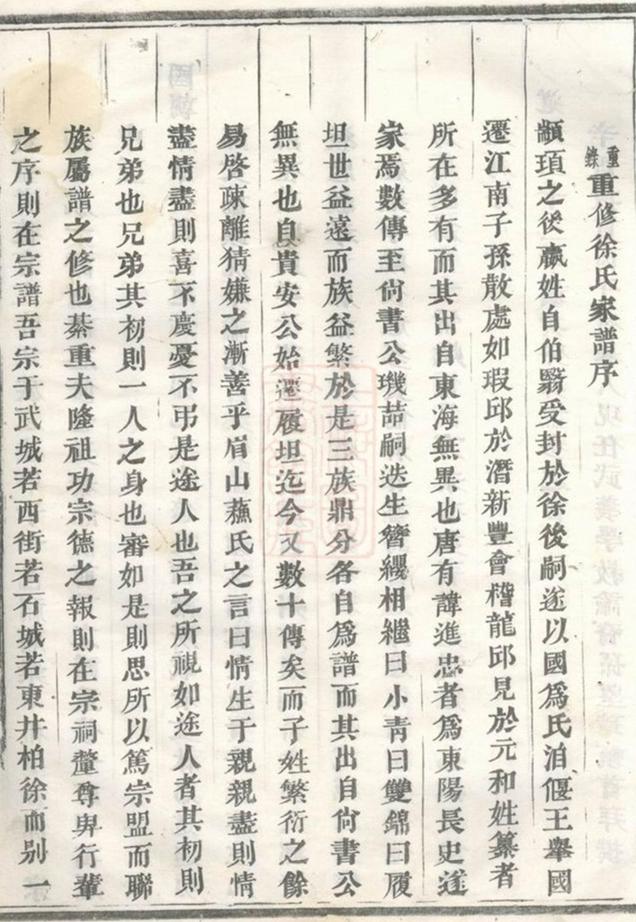 重錄重修徐氏家譜序
顓頊之後嬴姓自伯翳受封於徐後嗣遂以國爲氏洎偃王舉國
遷江南子孫散處如瑕邱於潛新豐會稽龍邱見於元和姓纂者
所在多有而其出自東海無異也唐有諱進忠者爲東陽長史遂
家焉數傳至尙書公璣喆嗣迭生簪纓相繼曰小青曰雙錦曰履
坦世益遠而族益繁於是三族鼎分各自爲譜而其出自尙書公
無異也自貴安公始遷履坦迄今又數十傳矣而子姓繁衍之餘
易啓疎離猜嫌之漸善乎眉山蘓氏之言曰情生于親親盡則情
盡情盡則喜不慶憂不弔是途人也吾之所視如途人者其初則
兄弟也兄弟其初則一人之身也審如是則思所以篤宗盟而聯
族屬譜之修也綦重夫隆祖功宗德之報則在宗祠釐尊卑行輩
之序則在宗譜吾宗于武城若西街若石城若東井柏徐而別一